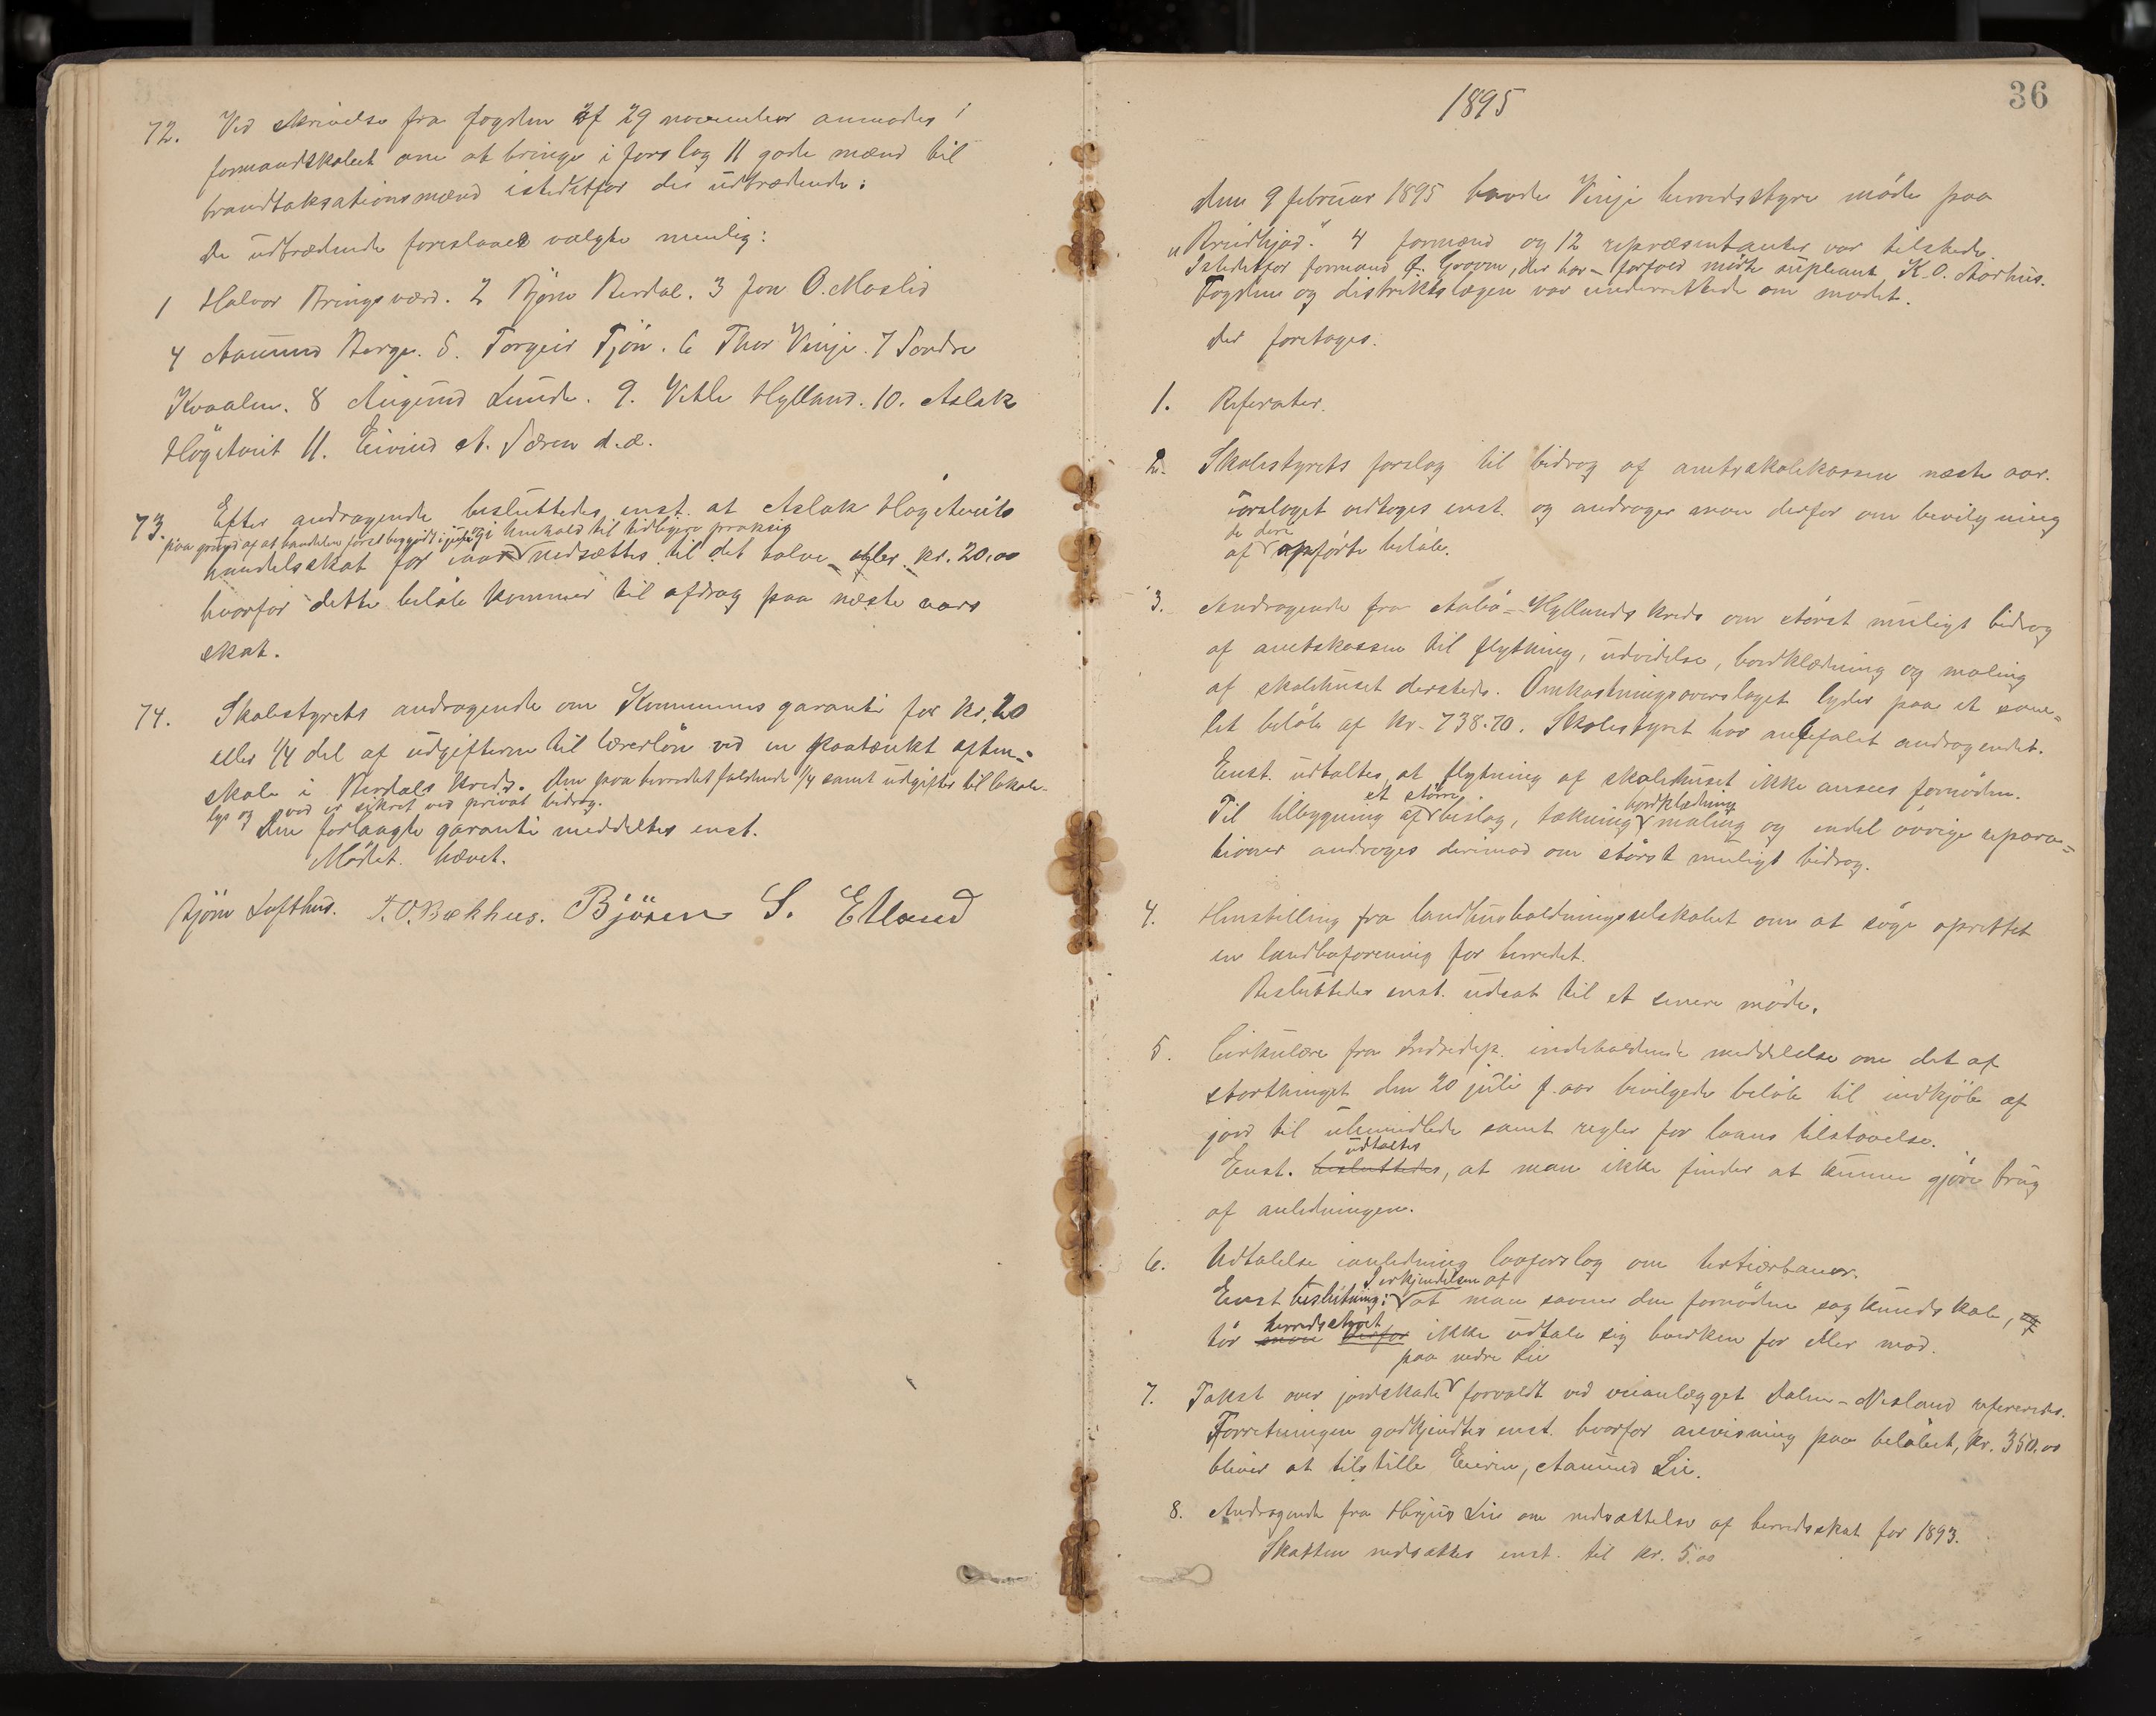 72. Ved skrivelse fra fogden af 29 november anmodes
formandskabet om at bringe i forslag 11 gode mænd til
brandtaksationsmænd istedetfor de udtrædende:
de udtrædende foreslaaes valgte nemlig:
1 Halvor Bringsværd. 2 Björn Berdal. 3 Jon O. Maslid
4 Aamund Berge. 5. Torgeir Tjön. 6 Thor Vinje. 7 Sondre
Kvaalen. 8 Augund Lunde. 9. Vetle Hylland. 10. Aslak
Högetveit 11. Eivind A. Særen d.æ.
73. Efter andragende besluttedes enst. at Aslak Högetveits
paa grund af at handelen først begyndt i juni og i henhold til tidligere praksis
handelsskat for iaar nedsættes til det halve eller kr. 20.00
hvorfor dette beløb kommer til afdrag paa næste aars
skat.
74. Skolestyrets andragende om Kommunens garanti for kr. 20
eller 1/4 del af udgifterne til lærerløn ved en paatænkt aften-
skole i Berdals kreds. Den paa herredet faldende 1/4 samt udgifter til lokale
lys og ved er sikret ved privat bidrag.
Den forlangte garanti meddeltes enst.
Mødet hævet.
Björn Lofthus. T. O. Bækhus. Björn S. Etland
36
1895
den 9 februar 1895 havde Vinje herredsstyre møde paa
"Breidkjød." 4 formænd og 12 repræsentanter var tilstede.
Istedetfor formand A. Groven, der har forfald mødte supleant K. O. Aarhus.
Fogden og distriktslægen var underrettede om mødet.
der foretoges.
1. Referater.
2. Skolestyrets forslag til bidrag af amtsskolekassen næste aar.
Forslaget vedtoges enst. og andrager man derfor om bevilgning
de deri
af opførte beløb.
3. Andragende fra Aabø-Hyllands kreds om størst muligt bidrag
af amtskassen til flytning, udvidelse, bordklædning og maling
af skolehuset dersteds. Omkostningsoverslaget lyder paa et sam-
let beløb af kr. 738.70. Skolestyret har anbefalet andragendet.
Enst. udtaltes, at flytning af skolehuset ikke ansees fornøden.
et større bordklædning
Til tilbygning af bislag, tækning maling og endel øvrige repara-
tioner andrages derimod om størst muligt bidrag.
4. Henstilling fra landhusholdningsselskabet om at søge oprettet
en landboforening for herredet.
Besluttedes enst. udsat til et senere møde.
5. Cirkulære fra Indredep. indeholdende meddelelse om det af
storthinget den 20 juli f. aar bevilgede beløb til indkjøb af
jord til ubemidlede samt regler for laans tilstaaelse.
udtaltes
Enst. besluttedes, at man ikke finder at kunne gjøre brug
af anledningen.
6. Udtalelse ianledning lovforslag om tertiærbaner.
I erkjendelsen af
Enst beslutning: at man savner den fornødne sagkundskab, og
herredsstyret
tør man derfor ikke udtale sig hverken for eller mod.
paa nedre Lie
7. Takst over jordskade forvoldt ved veianlægget Dalen-Nesland refereredes.
Forretningen godkjendtes enst. hvorfor anvisning paa beløbet, kr. 350.00
bliver at tilstille Eieren, Aamund Lie.
8. Andragende fra Herjus Lie om nedsættelse af herredsskat for 1893.
Skatten nedsattes enst. til kr. 5.00